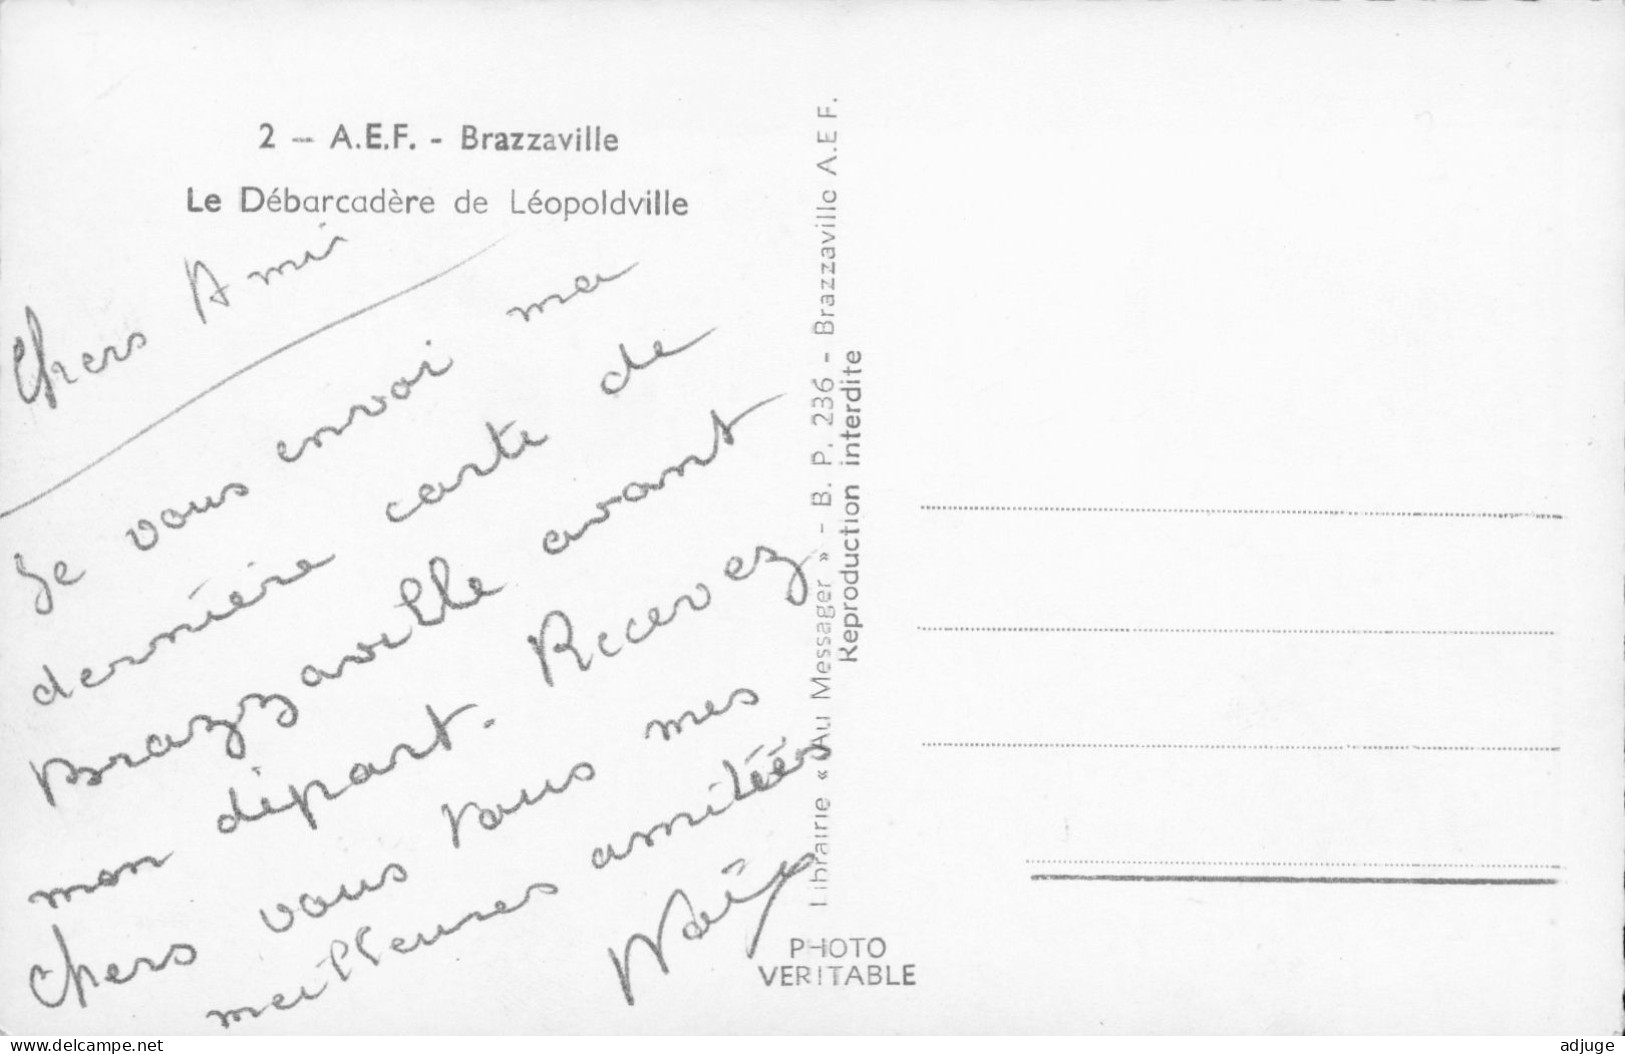 2 — A.E.F. - Brazzaville
Le Débarcadère de Léopoldville
Chers Ami
Je vous envoi ma
dernière carte de
Brazzaville avant
mon départ. Recevez
chers vous tous mes
meilleures amitéés
Librairie « Au Messager » - B. P. 236 - Brazzaville A.E.F.
Reproduction interdite
PHOTO
VERITABLE
www.delcampe.net
adjuge